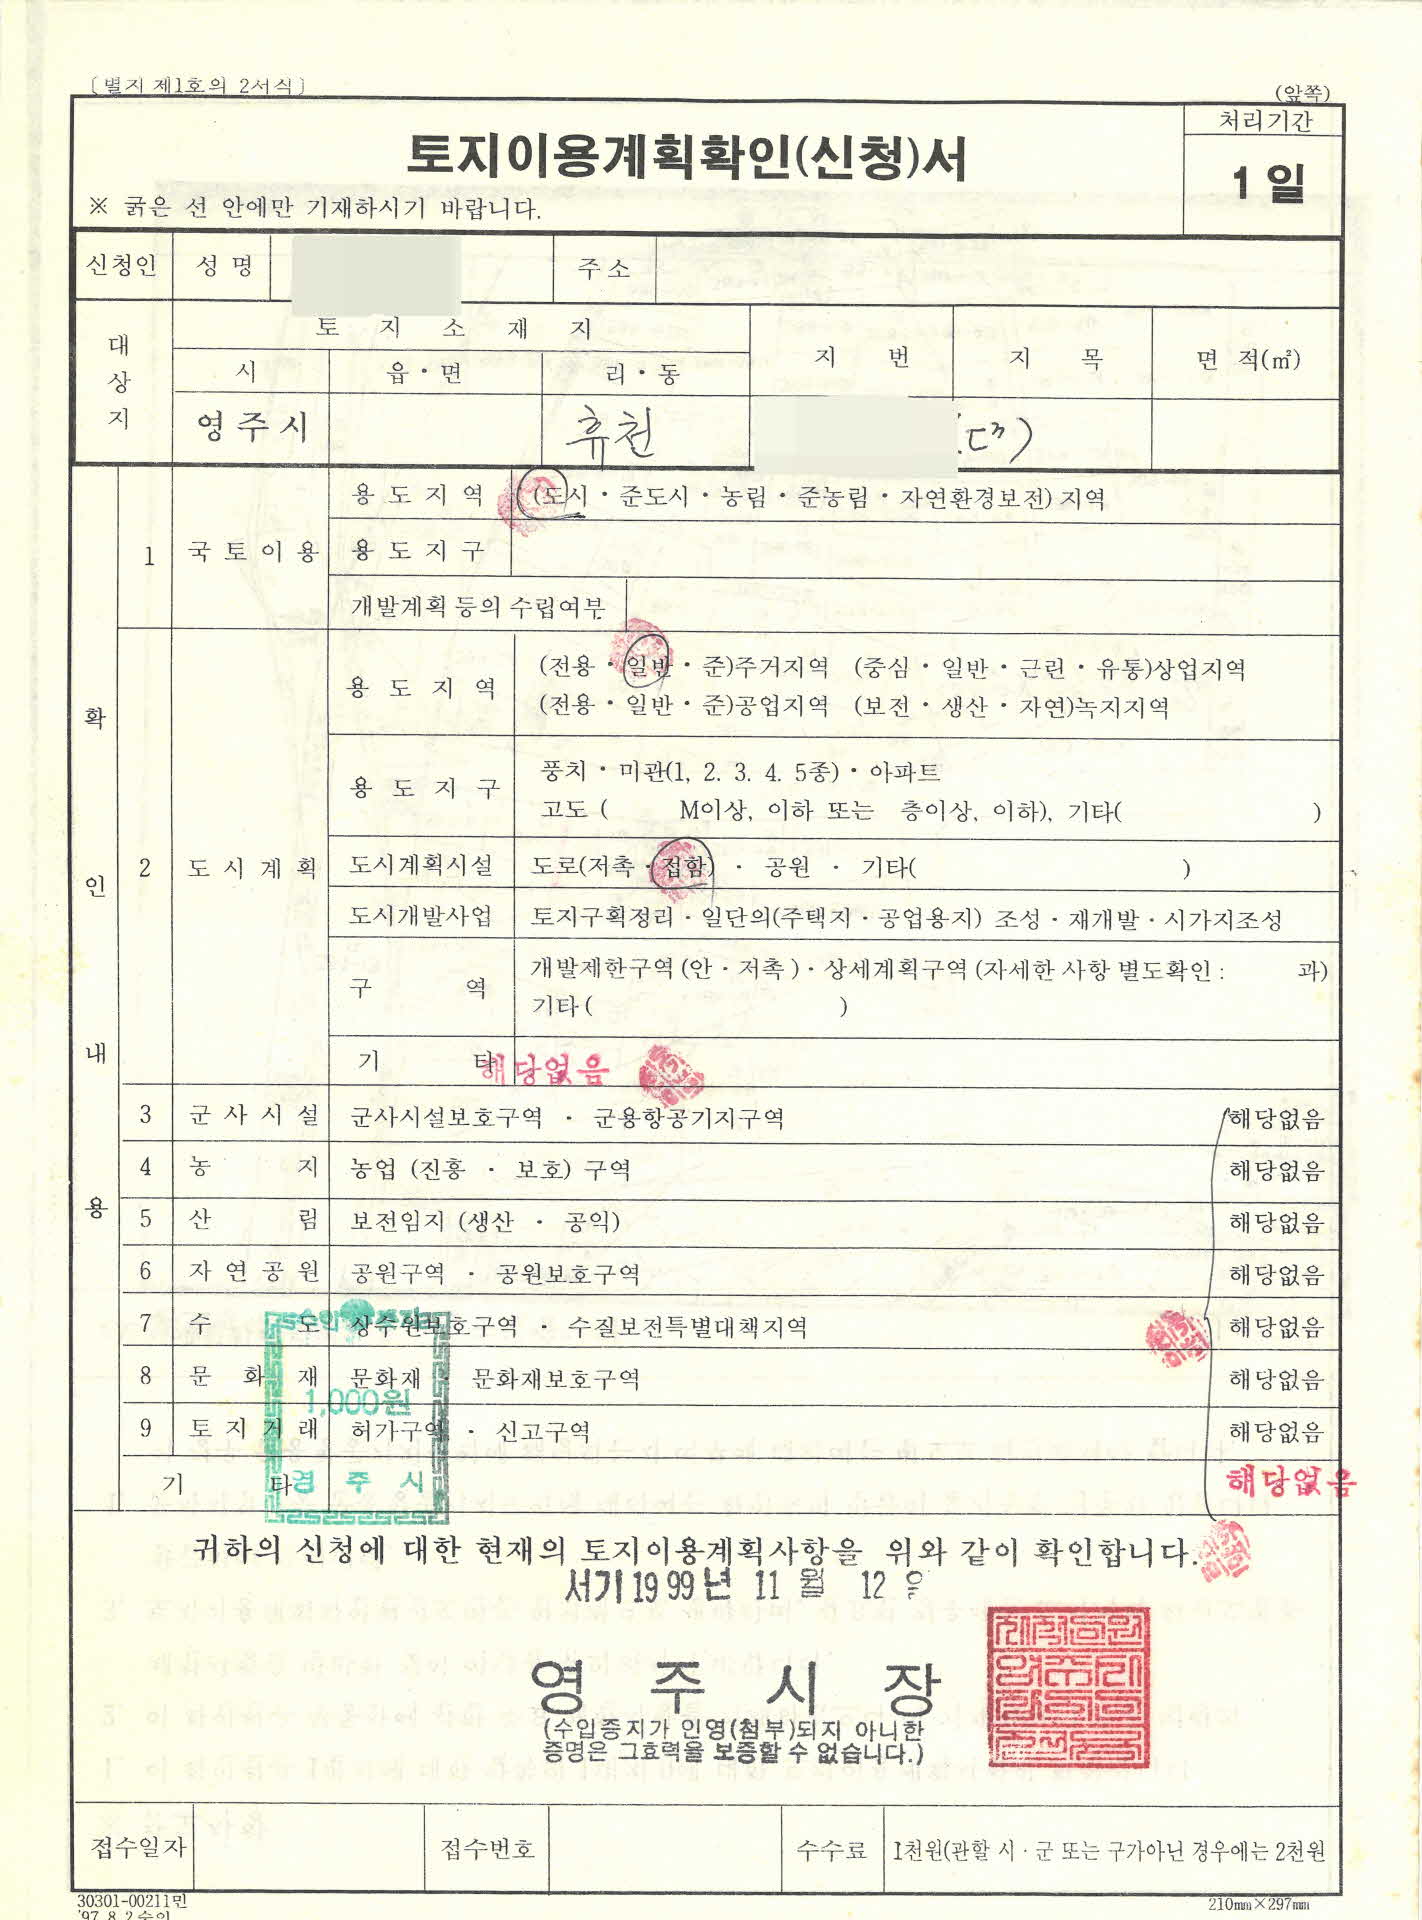 〔별지 제1호의 2서식〕
(앞쪽)
토지이용계획확인(신청)서
처리기간
1일
※ 굵은 선 안에만 기재하시기 바랍니다.
신청인 성명 주소
대상지 토지소재지 지번 지목 면적(㎡)
시 읍·면 리·동
영주시 휴천
확인내용
1 국토이용 용도지역 (도시·준도시·농림·준농림·자연환경보전)지역
용도지구
개발계획 등의 수립여부
2 도시계획 용도지역 (전용·일반·준)주거지역 (중심·일반·근린·유통)상업지역
(전용·일반·준)공업지역 (보전·생산·자연)녹지지역
용도지구 풍치·미관(1, 2. 3. 4. 5종)·아파트
고도 ( M이상, 이하 또는 층이상, 이하), 기타( )
도시계획시설 도로(저촉·접함) · 공원 · 기타( )
도시개발사업 토지구획정리·일단의(주택지·공업용지) 조성·재개발·시가지조성
구역 개발제한구역(안·저촉)·상세계획구역(자세한 사항 별도확인: 과)
기타( )
기타 해당없음
3 군사시설 군사시설보호구역 · 군용항공기지구역 해당없음
4 농지 농업 (진흥 · 보호) 구역 해당없음
5 산림 보전임지 (생산 · 공익) 해당없음
6 자연공원 공원구역 · 공원보호구역 해당없음
7 수도 상수원보호구역 · 수질보전특별대책지역 해당없음
8 문화재 문화재 · 문화재보호구역 해당없음
1,000원
9 토지거래 허가구역 · 신고구역 해당없음
기타 해당없음
경주시
귀하의 신청에 대한 현재의 토지이용계획사항을 위와 같이 확인합니다.
서기1999년 11월 12일
영주시장
(수입증지가 인영(첨부)되지 아니한
증명은 그효력을 보증할 수 없습니다.)
접수일자 접수번호 수수료 1천원(관할 시·군 또는 구가아닌 경우에는 2천원
30301-00211민
210mm×297mm
'97. 8. 2 승인